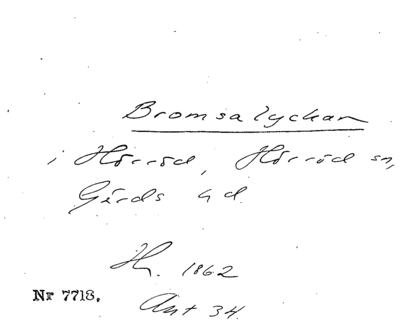 Bromsalyckan
i Hörröd, Hörröd sn,
Gärds hd.
H. 1862
Nr 7718.
Ant 34